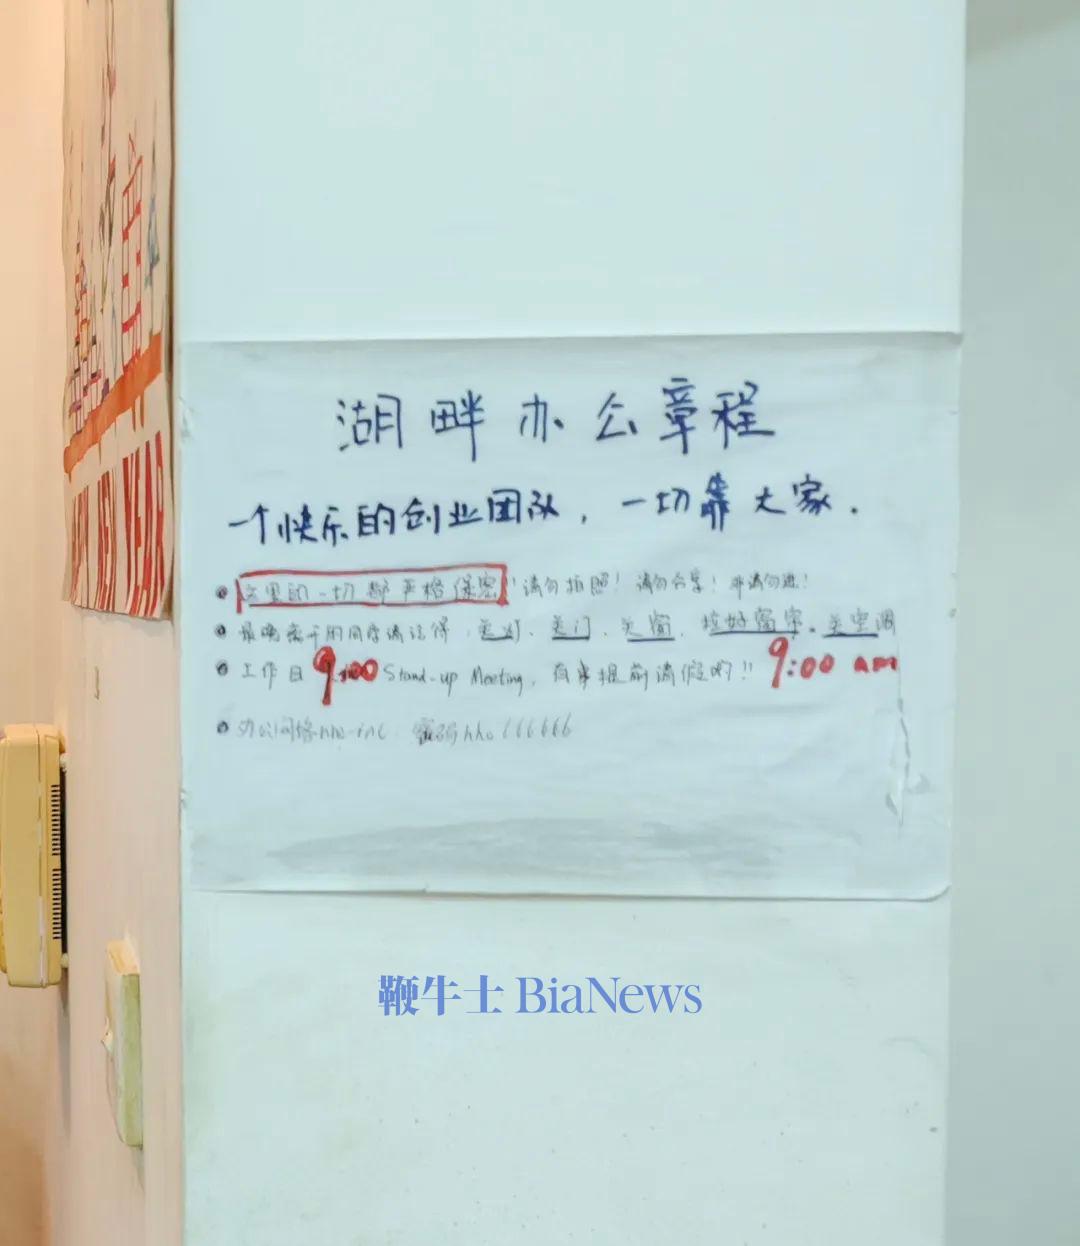 HAPPY NEW YEAR
湖畔办公章程
一个快乐的创业团队，一切靠大家.
这里的一切都严格保密！请勿拍照！请勿分享！非请勿进！
最晚离开的同学请记得，关灯、关门、关窗、拉好窗帘、关空调
工作日 9:00 Stand-up Meeting，有事提前请假哟!! 9:00 am
办公网络 hho-inc 密码 hho666666
鞭牛士 BiaNews